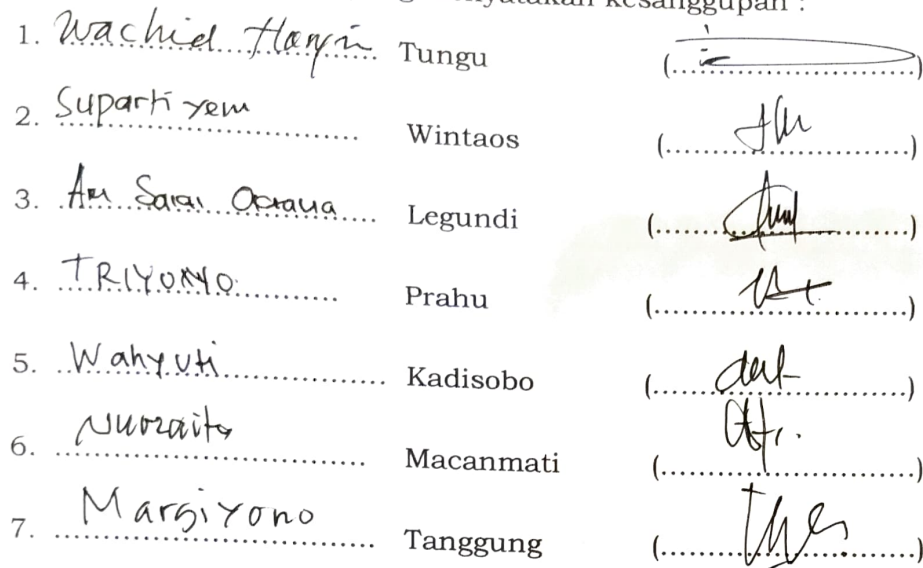 nyatakan kesanggupan :
1. Wachid Tungu (........................)
2. Supartiyem Wintaos (........................)
3. Sari Legundi (........................)
4. TRIYONO Prahu (........................)
5. Wahyuti Kadisobo (........................)
6. Nurzaita Macanmati (........................)
7. Margiyono Tanggung (........................)